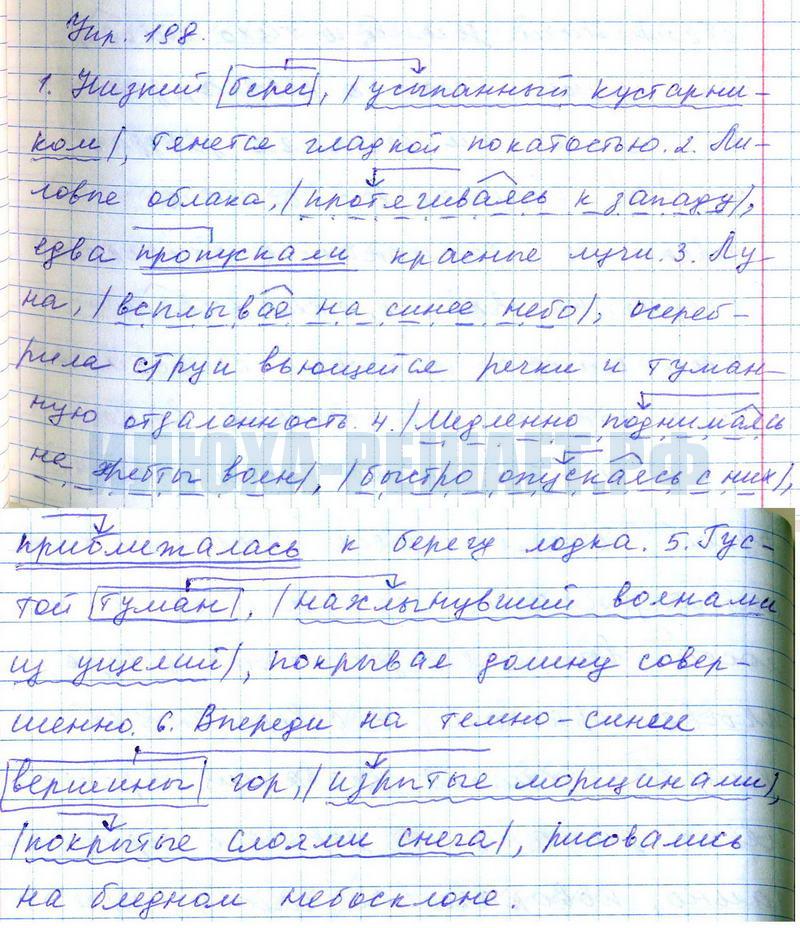 Упр. 198.
1. Низкий |берег|, |усыпанный кустарни-
ком|, тянется гладкой покатостью. 2. Ли-
ловые облака, |протягиваясь к западу|,
едва пропускали красные лучи. 3. Лу-
на, |всплывая на синее небо|, осереб-
рила струи вьющейся речки и туман-
ную отдаленность. 4. |Медленно поднимаясь
на хребты волн|, |быстро опускаясь с них|,
приближалась к берегу лодка. 5. Гус-
той |туман|, |нахлынувший волнами
из ущелий|, покрывал долину совер-
шенно. 6. Впереди на темно-синие
|вершины| гор, |изрытые морщинами|,
|покрытые слоями снега|, рисовались
на бледном небосклоне.
ИЛЮХА-РЕШАЕТ.РФ